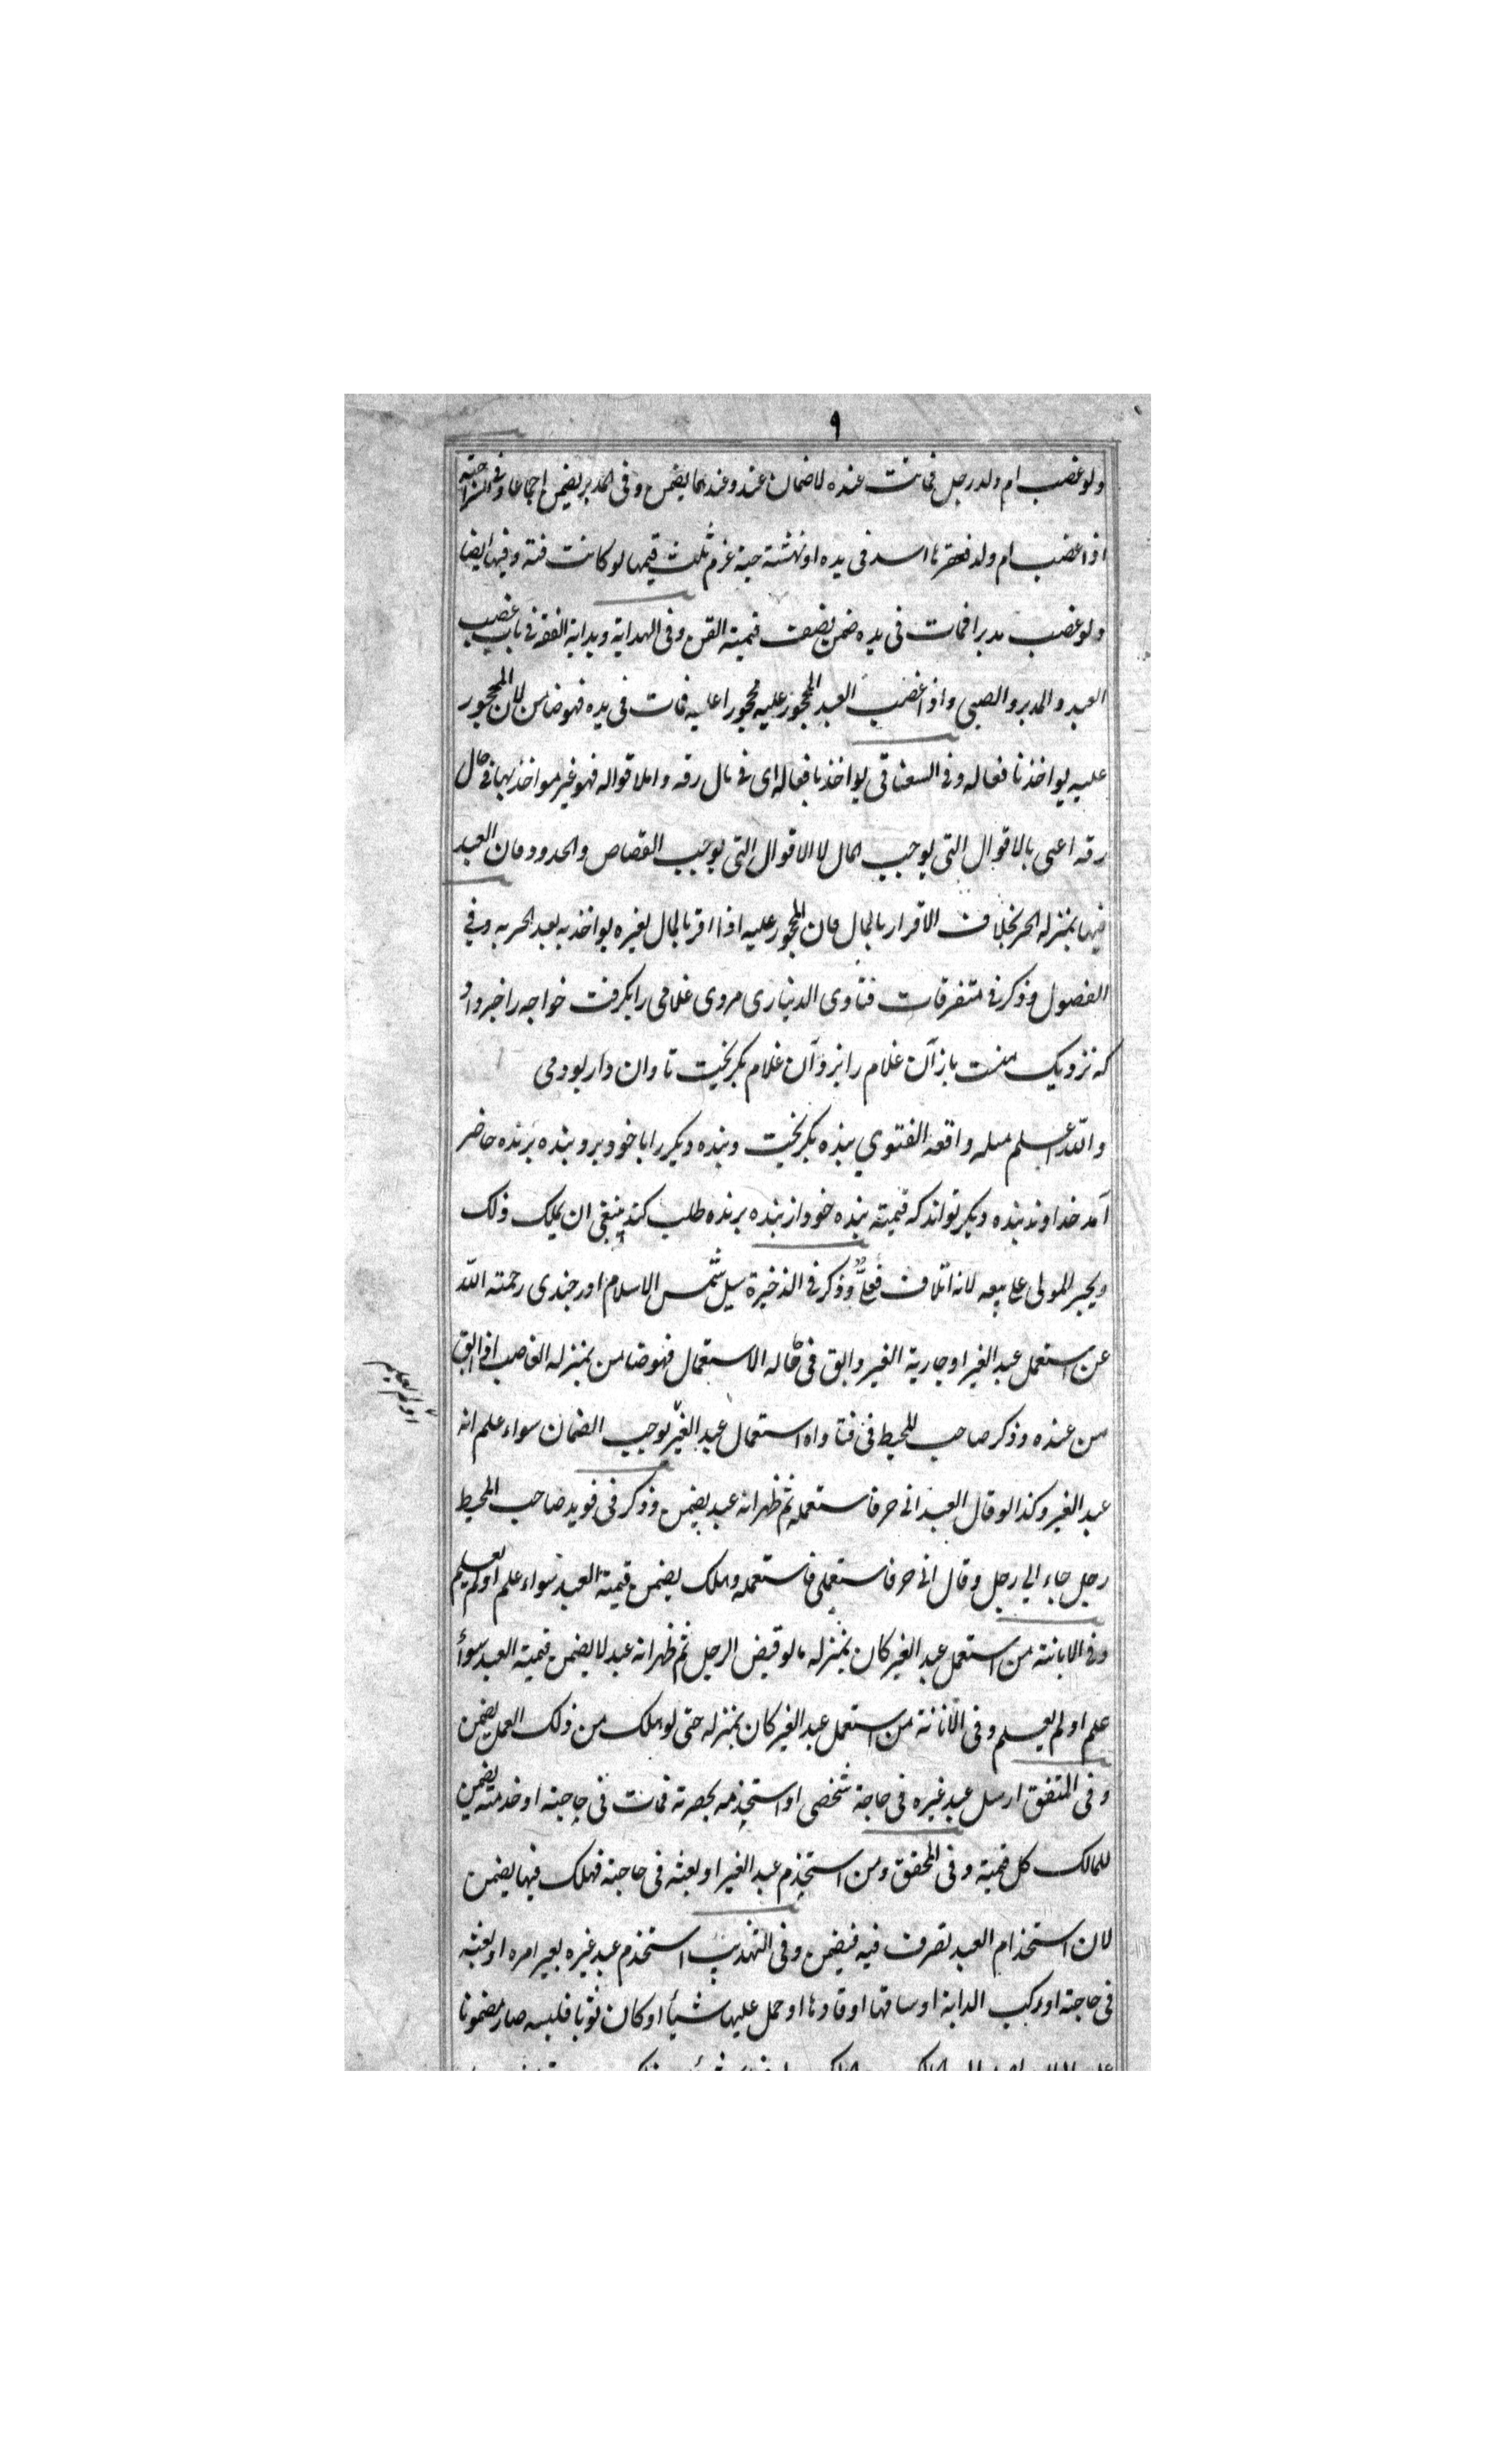 ٩
ولو غصب ام ولد رجل فماتت عنده لا ضمان عنده وعندهما يضمن وفى المدبر يضمن اجماعا وفى السراجيه
اذا غصب ام ولد فعقرها اسد فى يده او نهشته حية غرم ثلث قيمها لو كانت قنة وفيها ايضا
ولو غصب مدبرا فمات فى يده ضمن نصف قيمته القن وفى الهداية وبداية الفقه فى باب غصب
العبد والمدبر والصبى واذا غصب العبد المحجور عليه محجورا عليه فمات فى يده فهو ضامن لان المحجور
عليه يواخذ بافعاله وفى السغناقى يواخذ بافعاله اى فى حال رقه واما اقواله فهو غير مواخذ بها فى حال
رقه اعنى بالاقوال التى يوجب المال لا الاقوال التى يوجب القصاص والحدود فان العبد
فيها بمنزله الحر بخلاف الاقرار بالمال فان المحجور عليه اذا اقر بالمال لغيره يواخذ به بعد الحريه وفى
الفصول وذكر فى متفرقات فتاوى الدينارى مردى غلامى را بكرفت خواجه را خبر داد
كه نزديك منست باز آن غلام را بزد آن غلام بكريخت تاوان دار بود مى
والله اعلم مسله واقعه الفتوي بنده بكريخت وبنده ديكر را با خود برد بنده برنده حاضر
آمد خداوند بنده ديكر تواند كه قيمته بنده خود از بنده برنده طلب كند ينبغى ان يملك ذلك
ويجبر المولى على بيعه لانه اتلاف فعلا وذكر فى الذخيرة سيل شمس الاسلام اورجندى رحمته الله
عن استعمل عبد الغير او جارية الغير وابق فى حاله الاستعمال فهو ضامن بمنزله الغاصب اذا ابق
من عنده وذكر صاحب المحيط فى فتاواه استعمال عبد الغير يوجب الضمان سواء علم انه
عبد الغير وكذا لو قال العبد انى حر فاستعمله ثم ظهر انه عبد يضمن وذكر فى فويد صاحب المحيط
رجل جاء الي رجل وقال انى حر فاستعملى فاستعمله وهلك يضمن قيمة العبد سواء علم او لم يعلم
وفى الابانته من استعمل عبد الغير كان بمنزله ما لو قبض الرجل ثم ظهر انه عبد لا يضمن قيمته العبد سواأ
علم او لم يعلم وفى من استعمل عبد الغير كان بمنزله حتى لو هلك من ذلك العمل يضمن
وفى المتفق ارسل عبد غيره فى حاجة شخصى او استخدمه بحصرته فمات فى حاجته او خدمته يضمن
للمالك كل قميته وفى المحقق ومن استخدم عبد الغير او بعثه فى حاجته فهلك فيها يضمن
لان استخدام العبد تصرف فيه فيضمن وفى التهذيب استخدم عبد غيره بغير امره او بعثه
فى حاجته او ركب الدابة او ساقها او قادها او حمل عليها شيأ او كان ثوبا فلبسه صار مضمونا